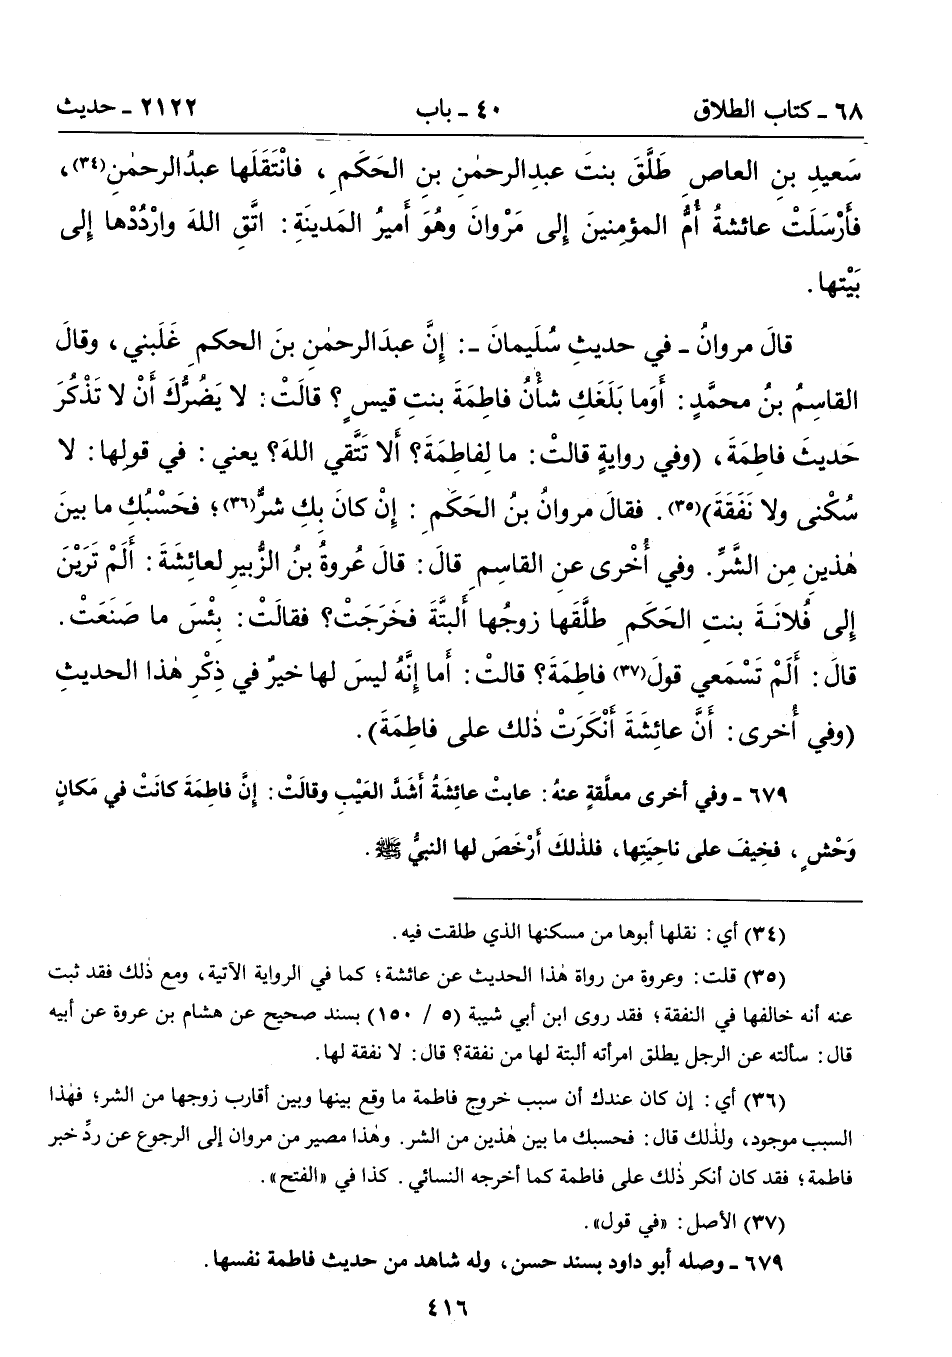 ٦٨ ـ كتاب الطلاق ٤٠ ـ باب ٢١٢٢ ـ حديث
سَعيدِ بنِ العاصِ طَلَّقَ بنتَ عبدِالرحمٰنِ بنِ الحَكَمِ ، فانْتَقَلَها عبدُالرحمٰنِ(٣٤)،
فأَرْسَلَتْ عائشةُ أُمُّ المؤمنينَ إِلى مَرْوانَ وهُوَ أَميرُ المَدينَةِ: اتَّقِ اللهَ وارْدُدْها إِلى
بَيْتِها.
قالَ مروانُ ـ في حديثِ سُلَيمانَ ـ: إِنَّ عبدَالرحمٰنِ بنَ الحكمِ غَلَبني، وقالَ
القاسِمُ بنُ محمَّدٍ: أَوَما بَلَغَكِ شأْنُ فاطِمَةَ بنتِ قيسٍ؟ قالَتْ: لا يَضُرُّكَ أَنْ لا تَذْكُرَ
حَديثَ فاطِمَةَ، (وفي روايةٍ قالتْ: ما لِفاطِمَةَ؟ أَلا تَتَّقي اللهَ؟ يعني: في قولِها: لا
سُكْنى ولا نَفَقَةَ)(٣٥). فقالَ مروانُ بنُ الحَكَمِ : إِنْ كانَ بِكِ شرٌّ(٣٦)؛ فحَسْبُكِ ما بينَ
هٰذينِ مِن الشَّرِّ. وفي أُخْرى عن القاسمِ قالَ: قالَ عُروةُ بنُ الزُّبيرِ لعائِشَةَ: أَلَمْ تَرَيْنَ
إِلى فُلانَةَ بنتِ الحَكَمِ طلَّقَها زوجُها أَلبتَّةَ فخَرَجَتْ؟ فقالَتْ: بِئْسَ ما صَنَعَتْ.
قالَ: أَلَمْ تَسْمَعي قولَ(٣٧) فاطِمَةَ؟ قالتْ: أَما إِنَّهُ ليسَ لها خيرٌ في ذِكْرِ هٰذا الحديثِ
(وفي أُخرى: أَنَّ عائِشَةَ أَنْكَرَتْ ذٰلك على فاطِمَةَ).
٦٧٩ ـ وفي أخرى معلَّقةٍ عنهُ: عابتْ عائِشَةُ أَشَدَّ العَيْبِ وقالَتْ: إِنَّ فاطِمَةَ كانَتْ في مَكانٍ
وَحْشٍ، فخِيفَ على ناحِيَتِها، فلذٰلكَ أَرْخَصَ لها النبيُّ ﷺ.
(٣٤) أي: نقلها أبوها من مسكنها الذي طلقت فيه.
(٣٥) قلت: وعروة من رواة هٰذا الحديث عن عائشة؛ كما في الرواية الآتية، ومع ذٰلك فقد ثبت
عنه أنه خالفها في النفقة؛ فقد روى ابن أبي شيبة (٥ / ١٥٠) بسند صحيح عن هشام بن عروة عن أبيه
قال: سألته عن الرجل يطلق امرأته ألبتة لها من نفقة؟ قال: لا نفقة لها.
(٣٦) أي: إن كان عندك أن سبب خروج فاطمة ما وقع بينها وبين أقارب زوجها من الشر؛ فهٰذا
السبب موجود، ولذٰلك قال: فحسبك ما بين هٰذين من الشر. وهٰذا مصير من مروان إلى الرجوع عن ردِّ خبر
فاطمة؛ فقد كان أنكر ذٰلك على فاطمة كما أخرجه النسائي. كذا في «الفتح».
(٣٧) الأصل: «في قول».
٦٧٩ ـ وصله أبو داود بسند حسن، وله شاهد من حديث فاطمة نفسها.
٤١٦